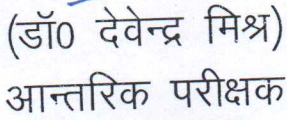 (डॉ0 देवेन्द्र मिश्र)
आन्तरिक परीक्षक